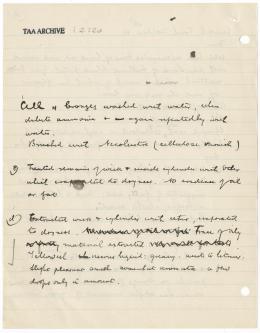 TAA ARCHIVE
1.2.120
All 4 Bronzes washed with water, then
dilute ammonia & again repeatedly with
water.
Brushed with Necoloidine (cellulose varnish)
Treated remains of wick & inside cylinder with ether
which evaporated to dryness. No evidence of oil
or fat
d) Extracted wick & cylinder with ether, evaporated
to dryness. Trace of oily
material extracted
Yellowish viscous liquid, greasy, acid to litmus,
slight pleasant smell, somewhat aromatic, a few
drops only in amount.